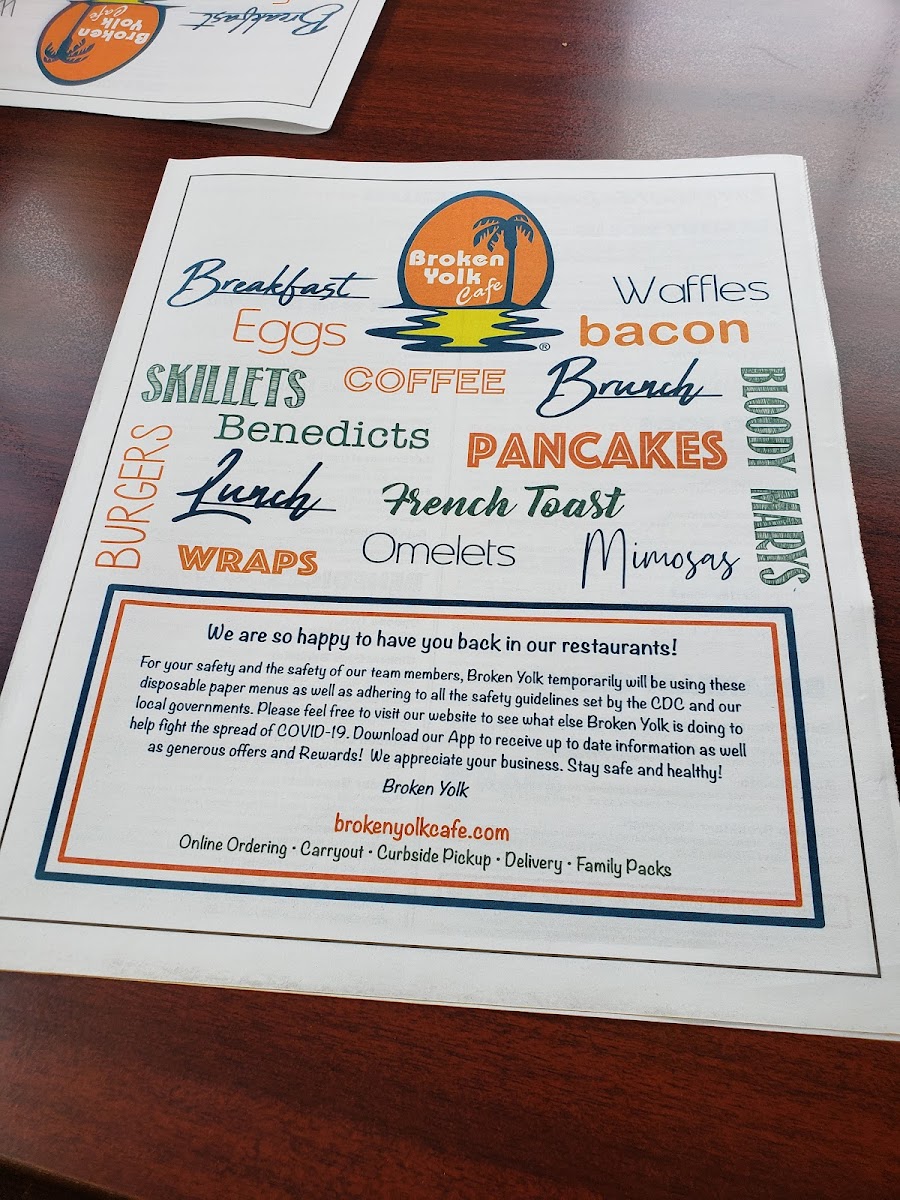 Breakfast
Broken
Yolk
Cafe
Broken
Yolk
Cafe
®
Breakfast
Waffles
Eggs
bacon
SKILLETS
COFFEE
Brunch
BLOODY MARYS
Benedicts
PANCAKES
BURGERS
Lunch
French Toast
WRAPS
Omelets
Mimosas
We are so happy to have you back in our restaurants!
For your safety and the safety of our team members, Broken Yolk temporarily will be using these
disposable paper menus as well as adhering to all the safety guidelines set by the CDC and our
local governments. Please feel free to visit our website to see what else Broken Yolk is doing to
help fight the spread of COVID-19. Download our App to receive up to date information as well
as generous offers and Rewards! We appreciate your business. Stay safe and healthy!
Broken Yolk
brokenyolkcafe.com
Online Ordering • Carryout • Curbside Pickup • Delivery • Family Packs